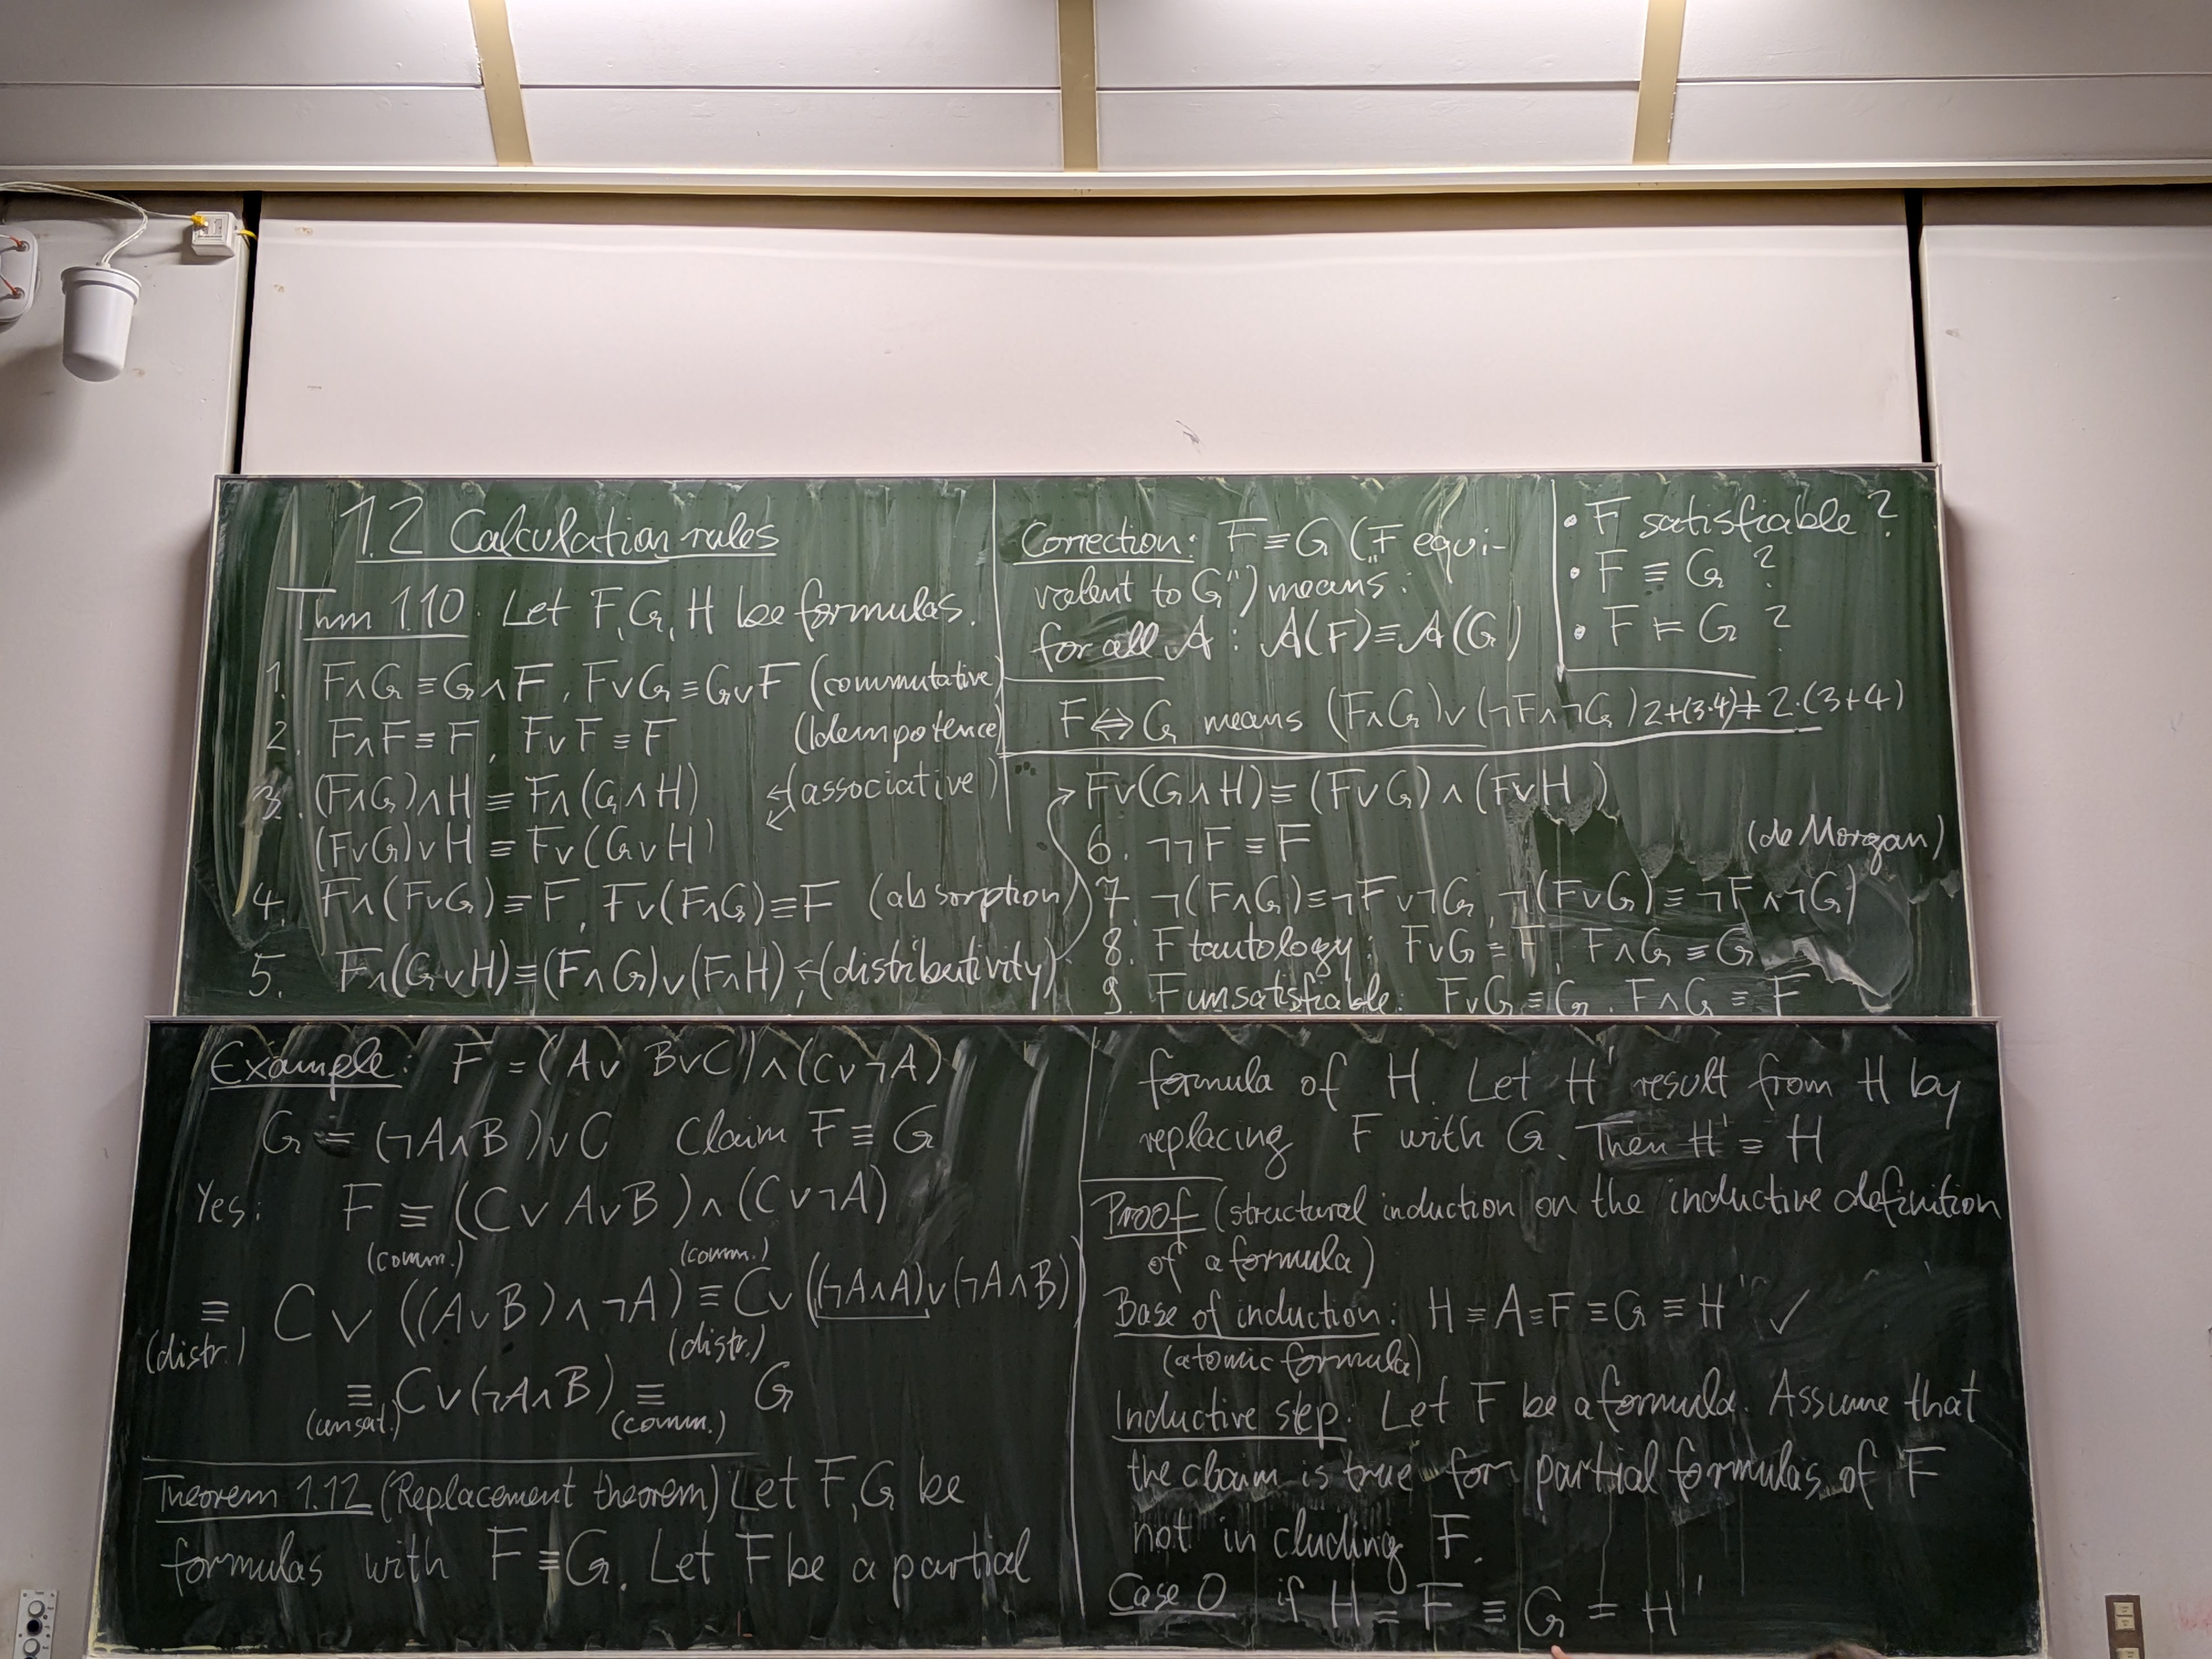 1.2 Calculation rules
Thm 1.10. Let F, G, H be formulas.
1. F∧G ≡ G∧F, F∨G ≡ G∨F (commutative)
2. F∧F ≡ F, F∨F ≡ F (Idempotence)
3. (F∧G)∧H ≡ F∧(G∧H) ←(associative)
(F∨G)∨H ≡ F∨(G∨H) ↙
4. F∧(F∨G) ≡ F, F∨(F∧G) ≡ F (absorption)
5. F∧(G∨H) ≡ (F∧G)∨(F∧H), ←(distributivity)
Correction: F ≡ G („F equi-
valent to G") means:
for all 𝒜 : 𝒜(F) ≡ 𝒜(G)
• F satisfiable?
• F ≡ G ?
• F ⊨ G ?
F ⇔ G means (F∧G)∨(¬F∧¬G) 2+(3·4) ≠ 2·(3+4)
→ F∨(G∧H) ≡ (F∨G)∧(F∨H)
6. ¬¬F ≡ F
(de Morgan)
7. ¬(F∧G) ≡ ¬F∨¬G, ¬(F∨G) ≡ ¬F∧¬G)
8. F tautology: F∨G ≡ F, F∧G ≡ G
9. F unsatisfiable: F∨G ≡ G, F∧G ≡ F
Example: F = (A∨ B∨C)∧(C∨¬A)
G = (¬A∧B)∨C Claim F ≡ G
Yes: F ≡ (C∨A∨B)∧(C∨¬A)
(comm.) (comm.)
≡ C∨((A∨B)∧¬A) ≡ C∨((¬A∧A)∨(¬A∧B))
(distr.) (distr.)
≡ C∨(¬A∧B) ≡ G
(unsat.) (comm.)
Theorem 1.12 (Replacement theorem) Let F, G be
formulas with F ≡ G. Let F be a partial
formula of H. Let H' result from H by
replacing F with G. Then H' ≡ H
Proof (structural induction on the inductive definition
of a formula)
Base of induction: H = A = F ≡ G ≡ H' ✓
(atomic formula)
Inductive step: Let F be a formula. Assume that
the claim is true for partial formulas of F
not including F.
Case 0 if H = F ≡ G = H'